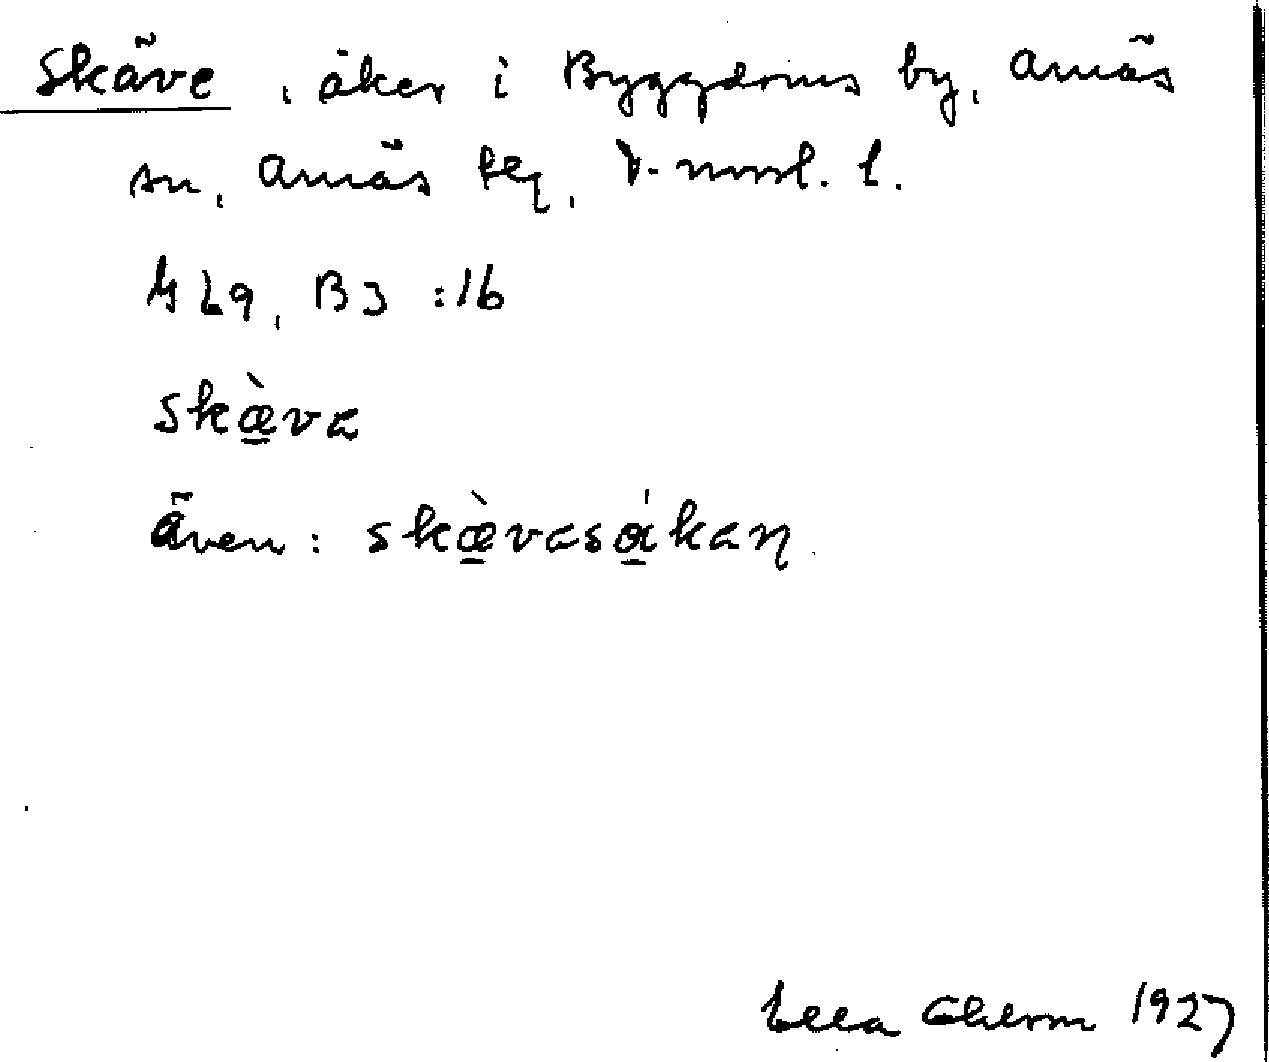 Skäve, åker i Byggdoms by, Arnäs
sn, Arnäs tlg, V-norrl. l.
B3 :16
skæ̀va
även: skæ̀vasákaɳ
Ella Odstrom 1927